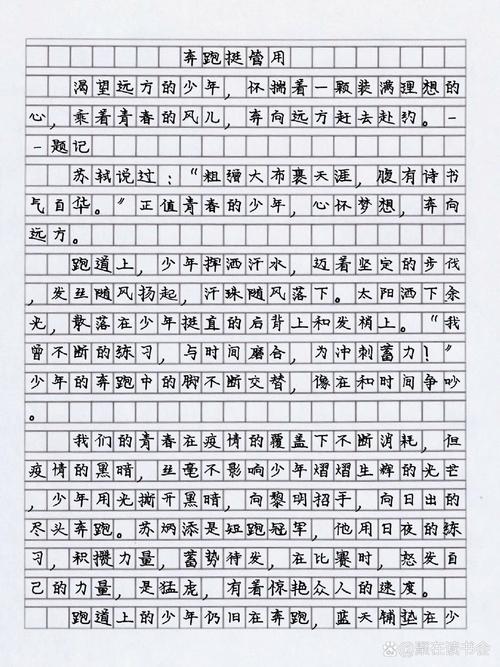 奔跑挺管用
渴望远方的少年，怀揣着一颗装满理想的
心，乘着青春的风儿，奔向远方赶去赴约。-
-题记
苏轼说过：“粗缯大布裹天涯，腹有诗书
气自华。”正值青春的少年，心怀梦想，奔向
远方。
跑道上，少年挥洒汗水，迈着坚定的步伐
，发丝随风扬起，汗珠随风落下。太阳洒下余
光，散落在少年挺直的后背上和发梢上。“我
曾不断的练习，与时间磨合，为冲刺蓄力！”
少年的奔跑中的脚不断交替，像在和时间争吵
。
我们的青春在疫情的覆盖下不断消耗，但
疫情的黑暗，丝毫不影响少年熠熠生辉的光芒
，少年用光撕开黑暗，向黎明招手，向日出的
尽头奔跑。苏炳添是短跑冠军，他用日夜的练
习，积攒力量，蓄势待发，在比赛时，怒发自
己的力量，是猛虎，有着惊艳众人的速度。
跑道上的少年仍旧在奔跑，蓝天铺垫在少